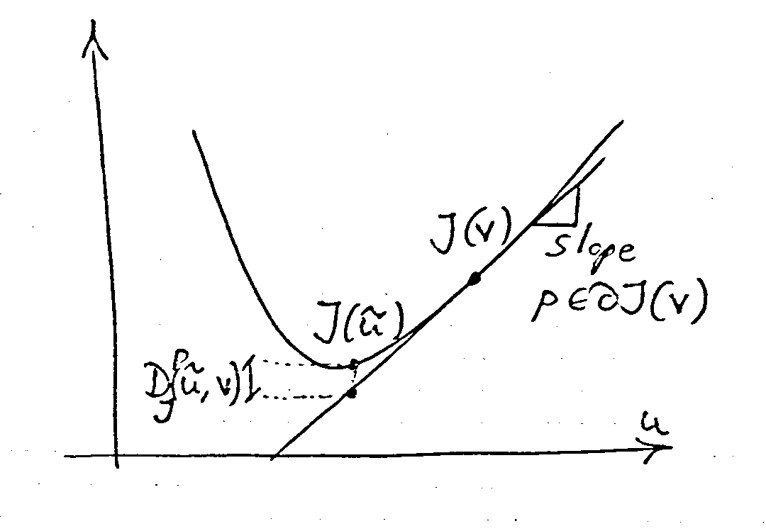 J(v)
slope
p∈∂J(v)
J(ũ)
D_J^p(ũ,v)
u